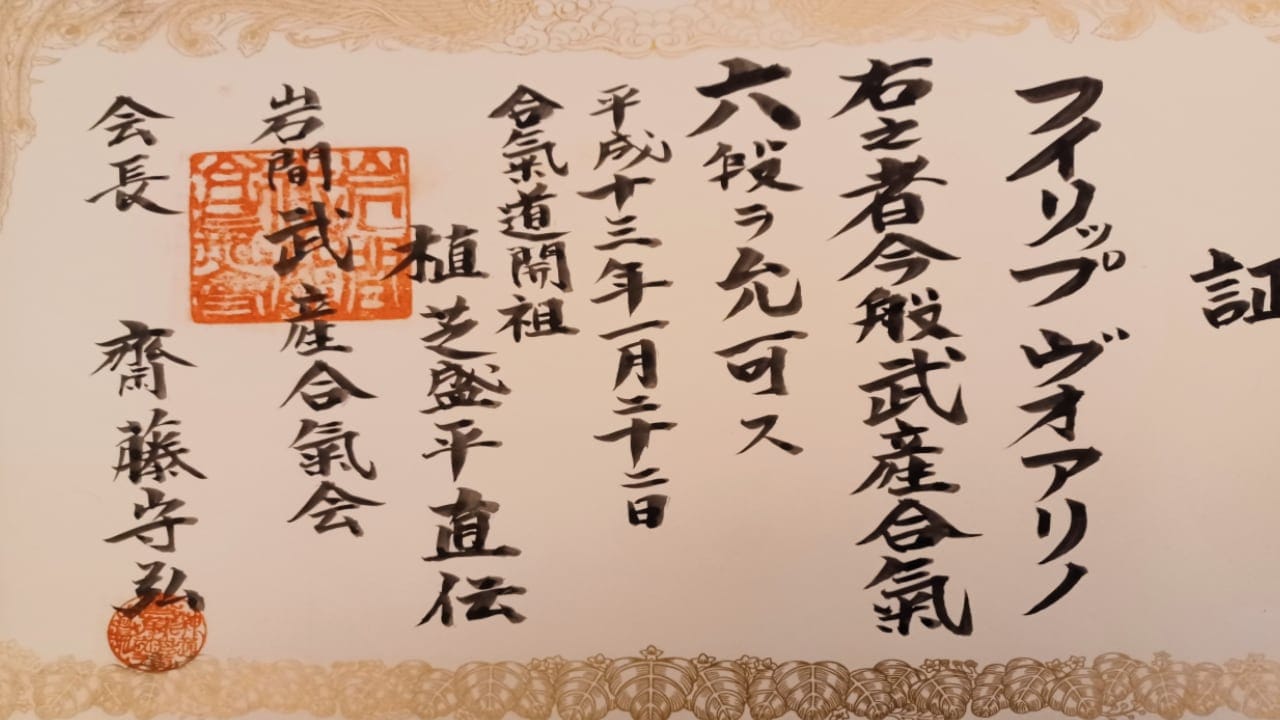 証
フイリップ ヴオアリノ
右之者今般武産合氣
六段ヲ允可ス
平成十三年一月二十二日
合氣道開祖
植芝盛平直伝
岩間武産合氣会
会長 齋藤守弘